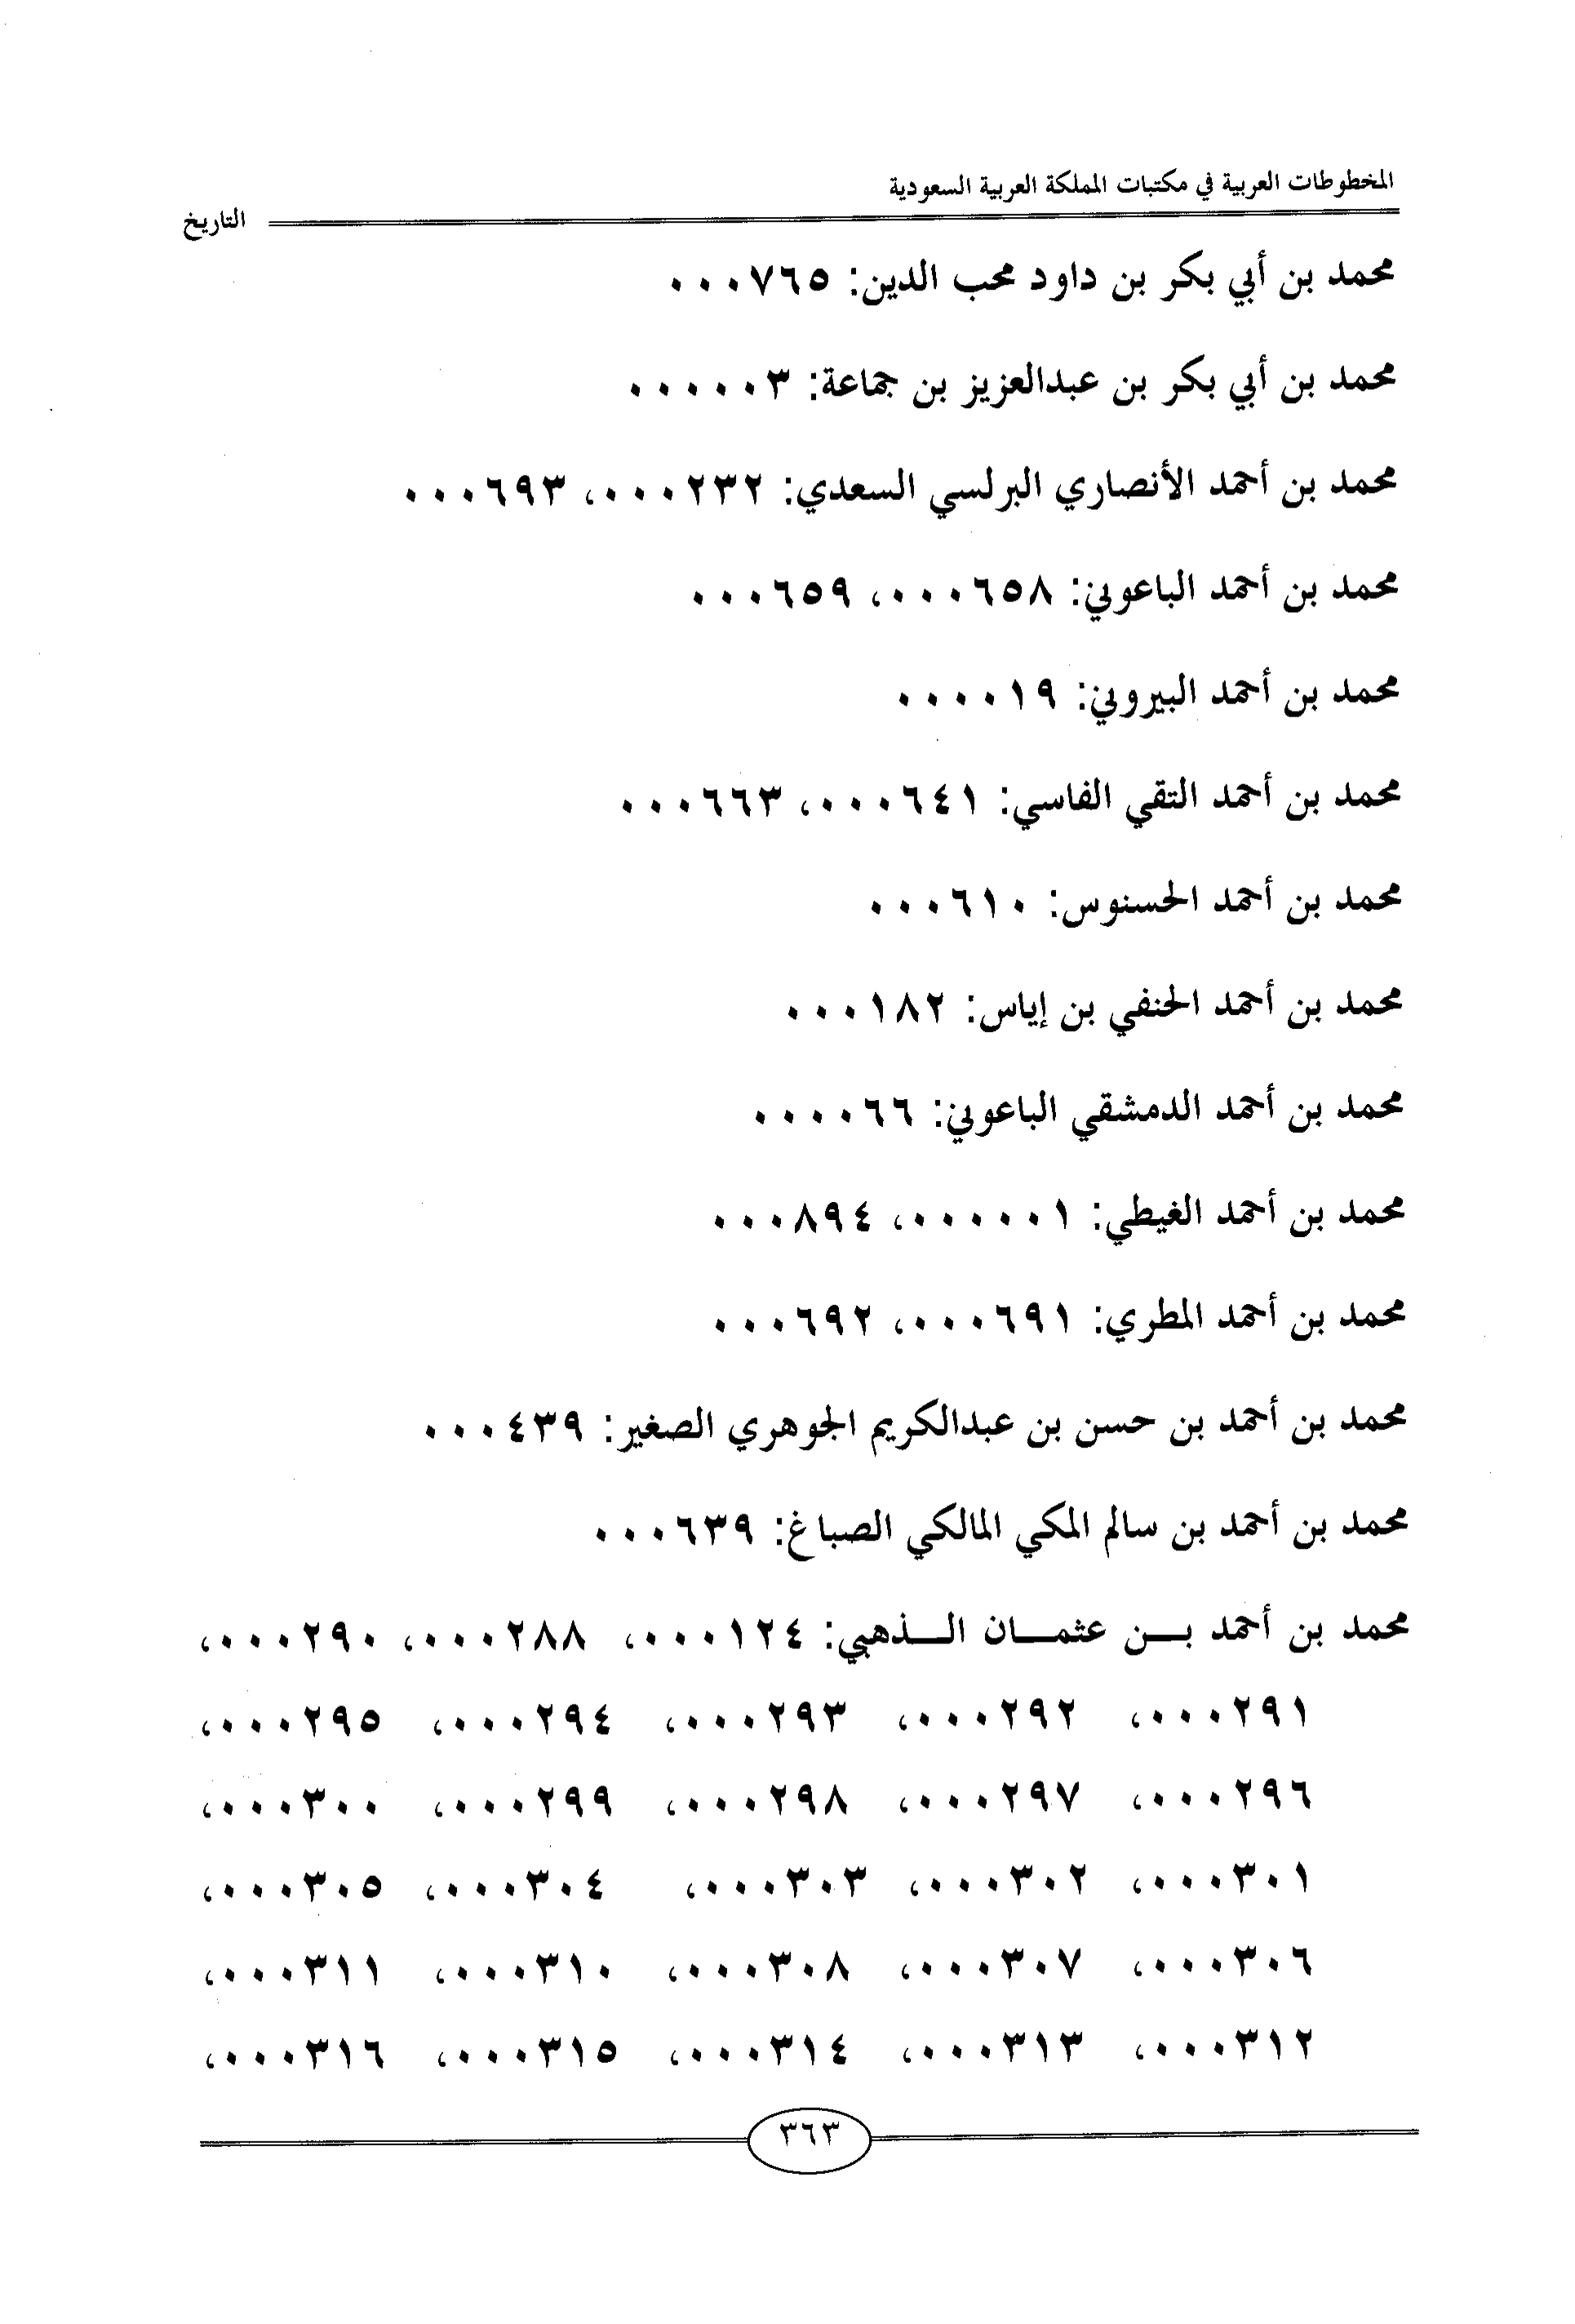 المخطوطات العربية في مكتبات المملكة العربية السعودية
التاريخ
محمد بن أبي بكر بن داود محب الدين: ٠٠٠٧٦٥
محمد بن أبي بكر بن عبدالعزيز بن جماعة: ٠٠٠٠٠٣
محمد بن أحمد الأنصاري البرلسي السعدي: ٠٠٠٢٣٢، ٠٠٠٦٩٣
محمد بن أحمد الباعوني: ٠٠٠٦٥٨، ٠٠٠٦٥٩
محمد بن أحمد البيروني: ٠٠٠٠١٩
محمد بن أحمد التقي الفاسي: ٠٠٠٦٤١، ٠٠٠٦٦٣
محمد بن أحمد الحسنوس: ٠٠٠٦١٠
محمد بن أحمد الحنفي بن إياس: ٠٠٠١٨٢
محمد بن أحمد الدمشقي الباعوني: ٠٠٠٠٦٦
محمد بن أحمد الغيطي: ٠٠٠٠٠١، ٠٠٠٨٩٤
محمد بن أحمد المطري: ٠٠٠٦٩١، ٠٠٠٦٩٢
محمد بن أحمد بن حسن بن عبدالكريم الجوهري الصغير: ٠٠٠٤٣٩
محمد بن أحمد بن سالم المكي المالكي الصباغ: ٠٠٠٦٣٩
محمد بن أحمد بـــن عثمـــان الـــذهبي: ٠٠٠١٢٤، ٠٠٠٢٨٨، ٠٠٠٢٩٠،
٠٠٠٢٩١، ٠٠٠٢٩٢، ٠٠٠٢٩٣، ٠٠٠٢٩٤، ٠٠٠٢٩٥،
٠٠٠٢٩٦، ٠٠٠٢٩٧، ٠٠٠٢٩٨، ٠٠٠٢٩٩، ٠٠٠٣٠٠،
٠٠٠٣٠١، ٠٠٠٣٠٢، ٠٠٠٣٠٣، ٠٠٠٣٠٤، ٠٠٠٣٠٥،
٠٠٠٣٠٦، ٠٠٠٣٠٧، ٠٠٠٣٠٨، ٠٠٠٣١٠، ٠٠٠٣١١،
٠٠٠٣١٢، ٠٠٠٣١٣، ٠٠٠٣١٤، ٠٠٠٣١٥، ٠٠٠٣١٦،
٣٦٣